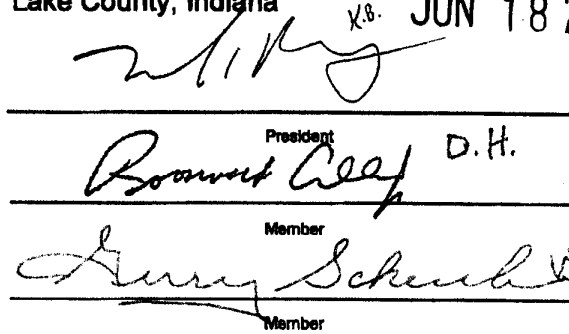 Lake County, Indiana K.B. JUN 18
President
Roosevelt Allen D.H.
Member
Gerry Scheub
Member